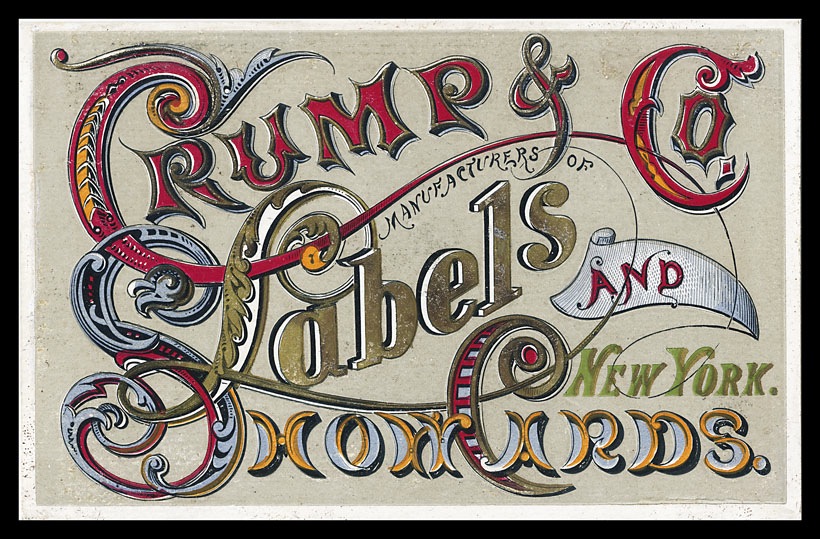 CRUMP & CO.
MANUFACTURERS OF
Labels
AND
NEW YORK.
SHOW CARDS.